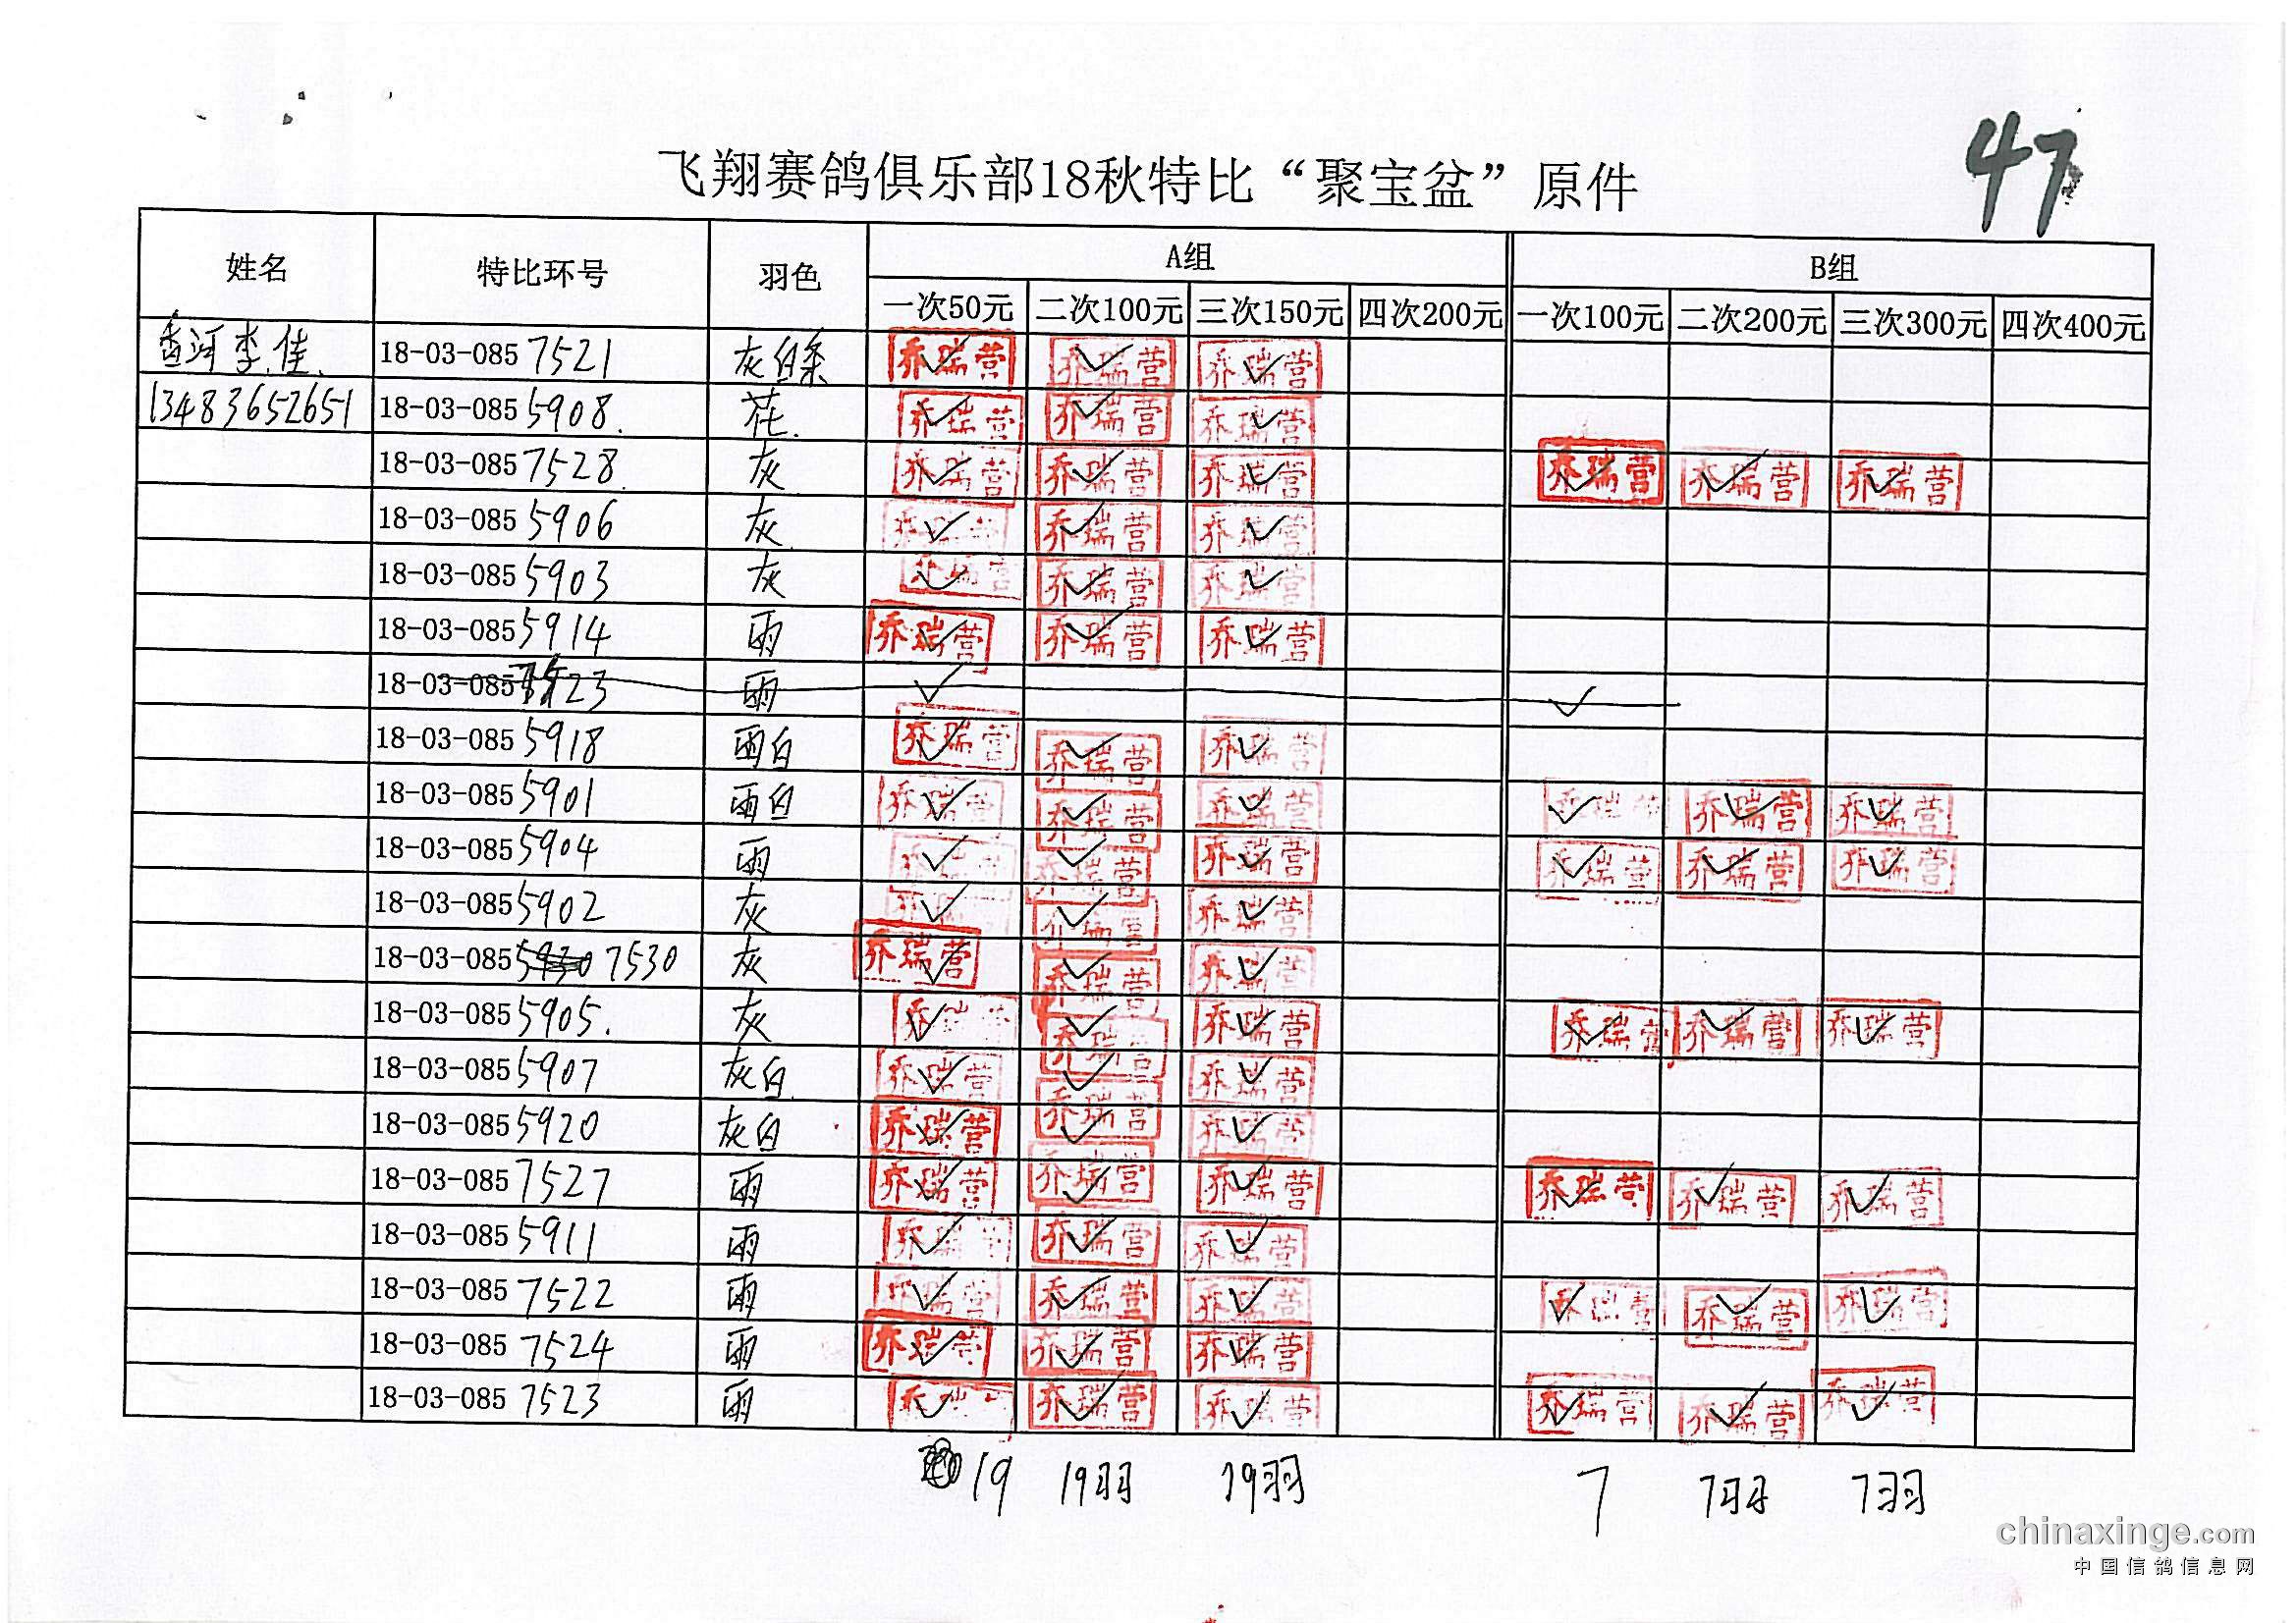 47
飞翔赛鸽俱乐部18秋特比“聚宝盆”原件
姓名 特比环号 羽色 A组 B组
一次50元 二次100元 三次150元 四次200元 一次100元 二次200元 三次300元 四次400元
香河李佳 18-03-085 7521 灰白条 乔瑞营 乔瑞营 乔瑞营
13483652651 18-03-085 5908. 花. 乔瑞营 乔瑞营 乔瑞营
18-03-085 7528 灰 乔瑞营 乔瑞营 乔瑞营 乔瑞营 乔瑞营 乔瑞营
18-03-085 5906 灰 乔瑞营 乔瑞营 乔瑞营
18-03-085 5903 灰 乔瑞营 乔瑞营 乔瑞营
18-03-085 5914 雨 乔瑞营 乔瑞营 乔瑞营
18-03-085 7523 雨
18-03-085 5918 雨白 乔瑞营 乔瑞营 乔瑞营
18-03-085 5901 雨白 乔瑞营 乔瑞营 乔瑞营 乔瑞营 乔瑞营 乔瑞营
18-03-085 5904 雨 乔瑞营 乔瑞营 乔瑞营 乔瑞营 乔瑞营 乔瑞营
18-03-085 5902 灰 乔瑞营 乔瑞营 乔瑞营
18-03-085 5930 7530 灰 乔瑞营 乔瑞营 乔瑞营
18-03-085 5905. 灰 乔瑞营 乔瑞营 乔瑞营 乔瑞营 乔瑞营 乔瑞营
18-03-085 5907 灰白 乔瑞营 乔瑞营 乔瑞营
18-03-085 5920 灰白 乔瑞营 乔瑞营 乔瑞营
18-03-085 7527 雨 乔瑞营 乔瑞营 乔瑞营 乔瑞营 乔瑞营 乔瑞营
18-03-085 5911 雨 乔瑞营 乔瑞营 乔瑞营
18-03-085 7522 雨 乔瑞营 乔瑞营 乔瑞营 乔瑞营 乔瑞营 乔瑞营
18-03-085 7524 雨 乔瑞营 乔瑞营 乔瑞营
18-03-085 7523 雨 乔瑞营 乔瑞营 乔瑞营 乔瑞营 乔瑞营 乔瑞营
19 19羽 19羽 7 7羽 7羽
chinaxinge.com
中国信鸽信息网